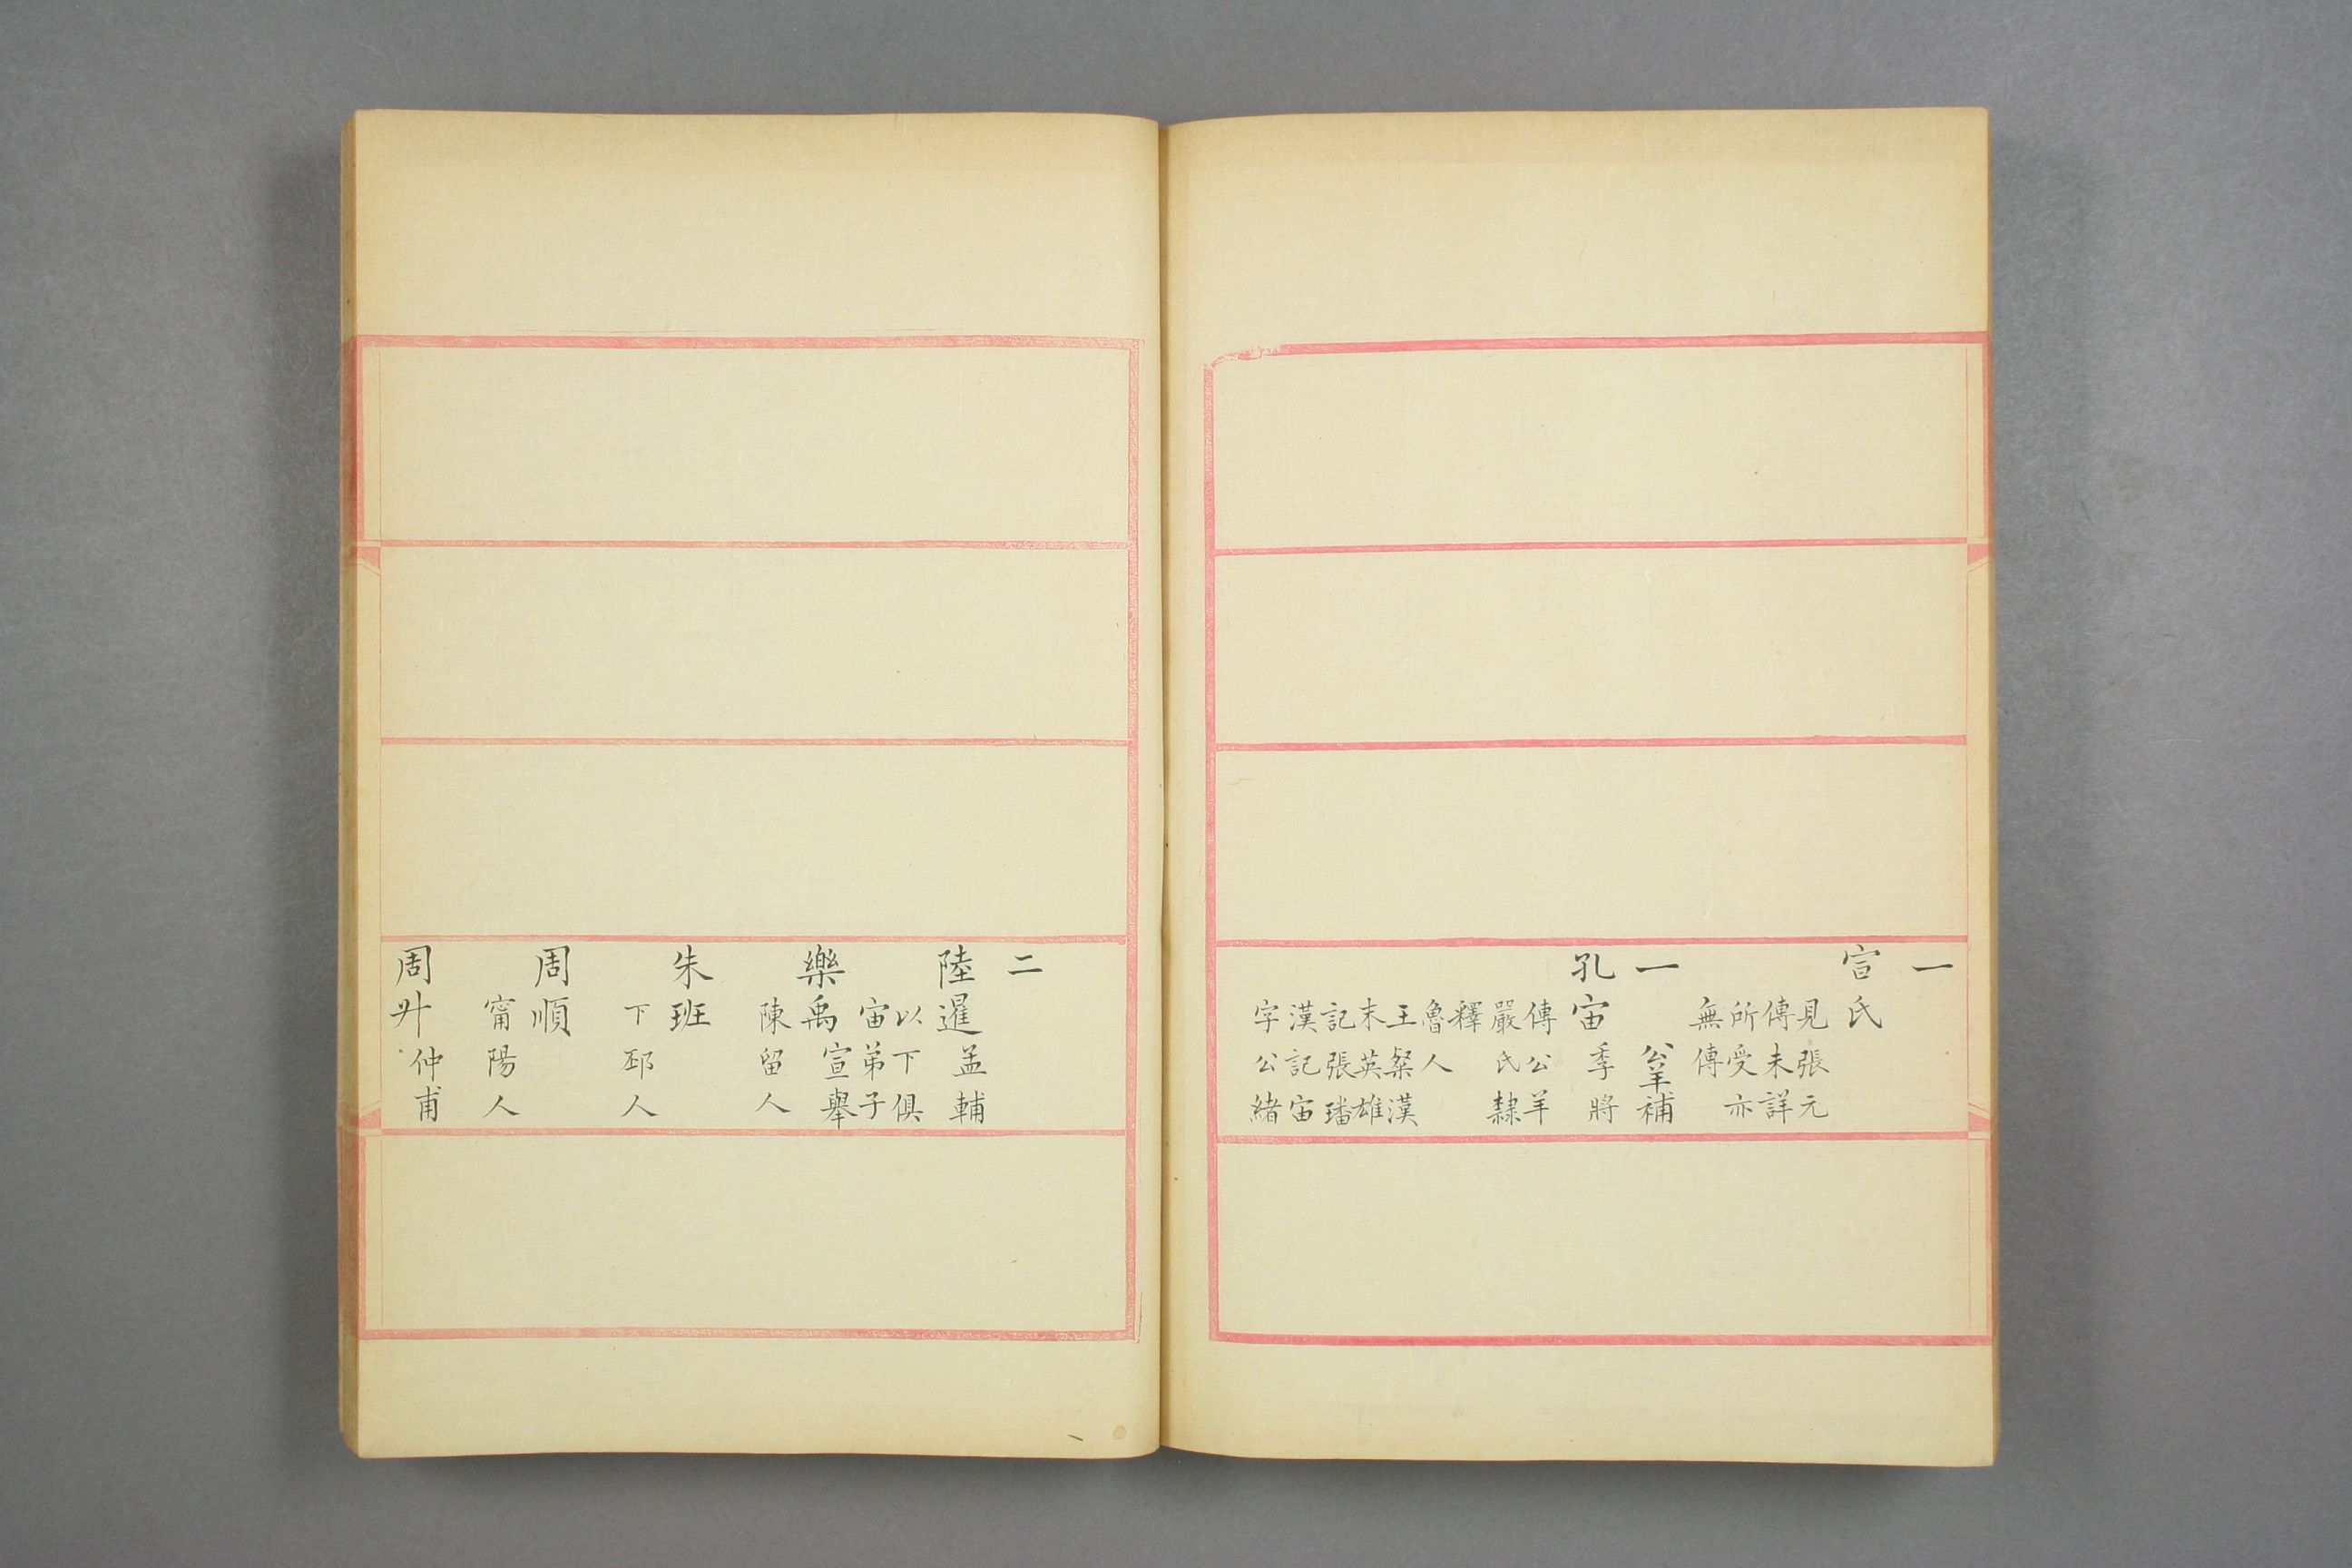 一
宣氏
見張元
傳未詳
所受亦
無傳
一公羊補
孔宙季將
傳公羊
嚴氏隸
釋
魯人
王粲漢
末英雄
記張璠
漢記宙
字公緒
二
陸暹孟輔
以下俱
宙弟子
樂禹宣舉
陳留人
朱班
下邳人
周順
甯陽人
周升仲甫